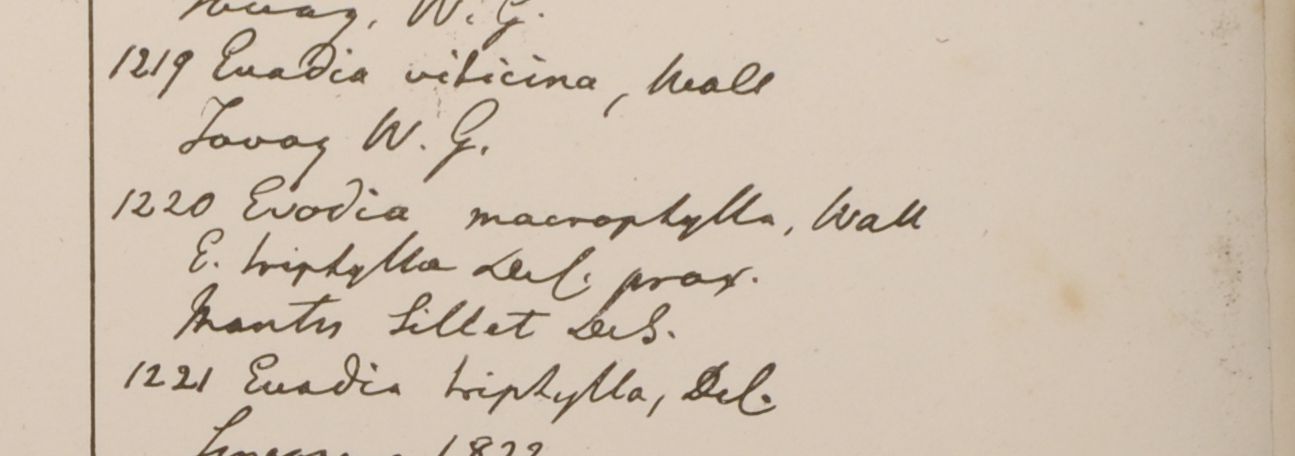 Tavoy, W. G.
1219 Euadia viticina, Wall
Tavoy W. G.
1220 Evodia macrophylla, Wall
E. triphylla Del. prox.
Montes Sillet DeS.
1221 Euadia triphylla, Del.
1822